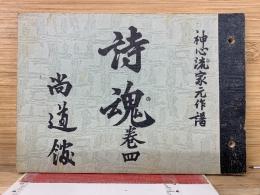 神心流家元作譜
詩魂
巻四
尚道館